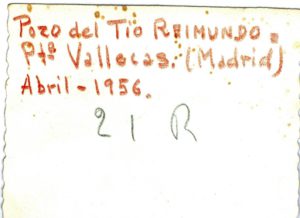 Pozo del Tio REIMUNDO.
Pte Vallecas. (Madrid)
Abril - 1956.
21 R